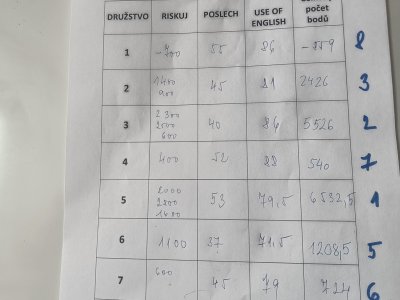 DRUŽSTVO RISKUJ POSLECH USE OF ENGLISH počet bodů
1 -700 55 86 -559 8
2 1400 45 81 2426 3
900
3 2300 40 86 5526 2
2500
600
4 400 52 88 540 7
5 2000 53 79,5 6532,5 1
2800
1600
6 1100 37 71,5 1208,5 5
7 600 45 79 724 6